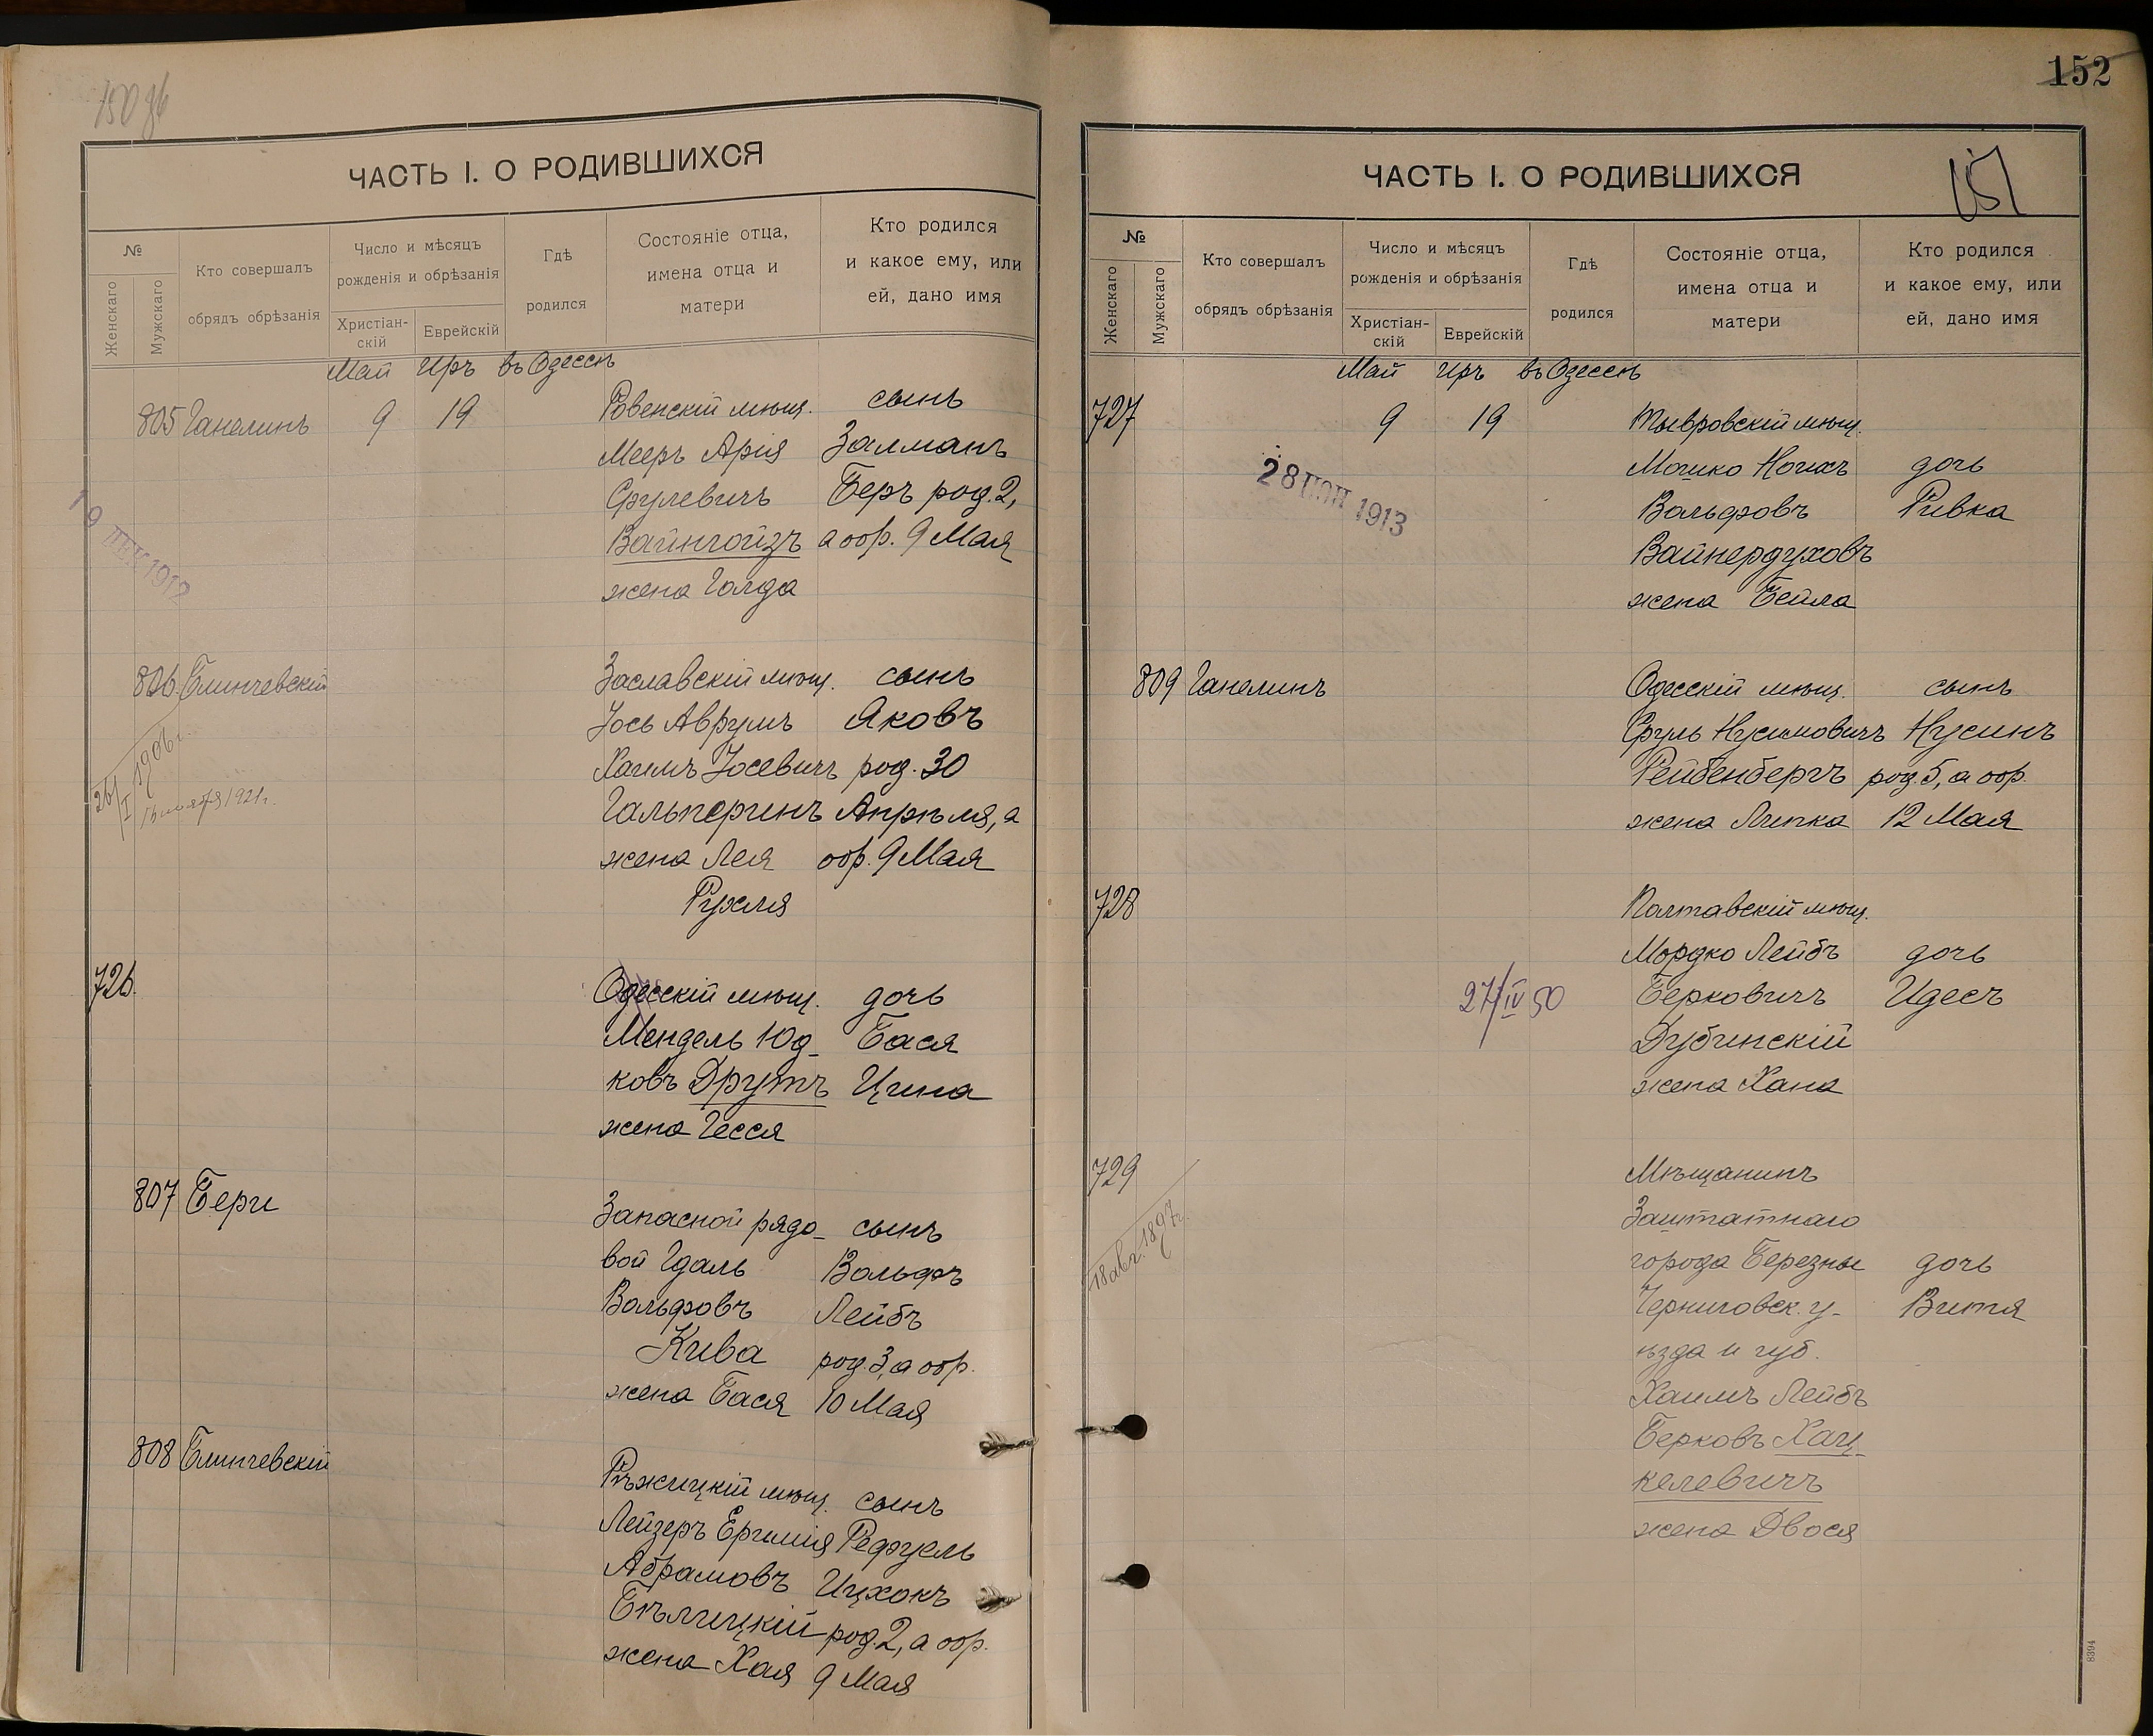 150 об
ЧАСТЬ I. О РОДИВШИХСЯ
№
Женскаго
Мужскаго
Кто совершалъ
обрядъ обрѣзанія
Число и мѣсяцъ
рожденія и обрѣзанія
Христіан-
скій
Еврейскій
Гдѣ
родился
Состояніе отца,
имена отца и
матери
Кто родился
и какое ему, или
ей, дано имя
Май Иръ въ Одессѣ
805 Ганелинъ 9 19 Ровенскій мѣщ. сынъ
Мееръ Арія Залманъ
Срулевичъ Беръ род. 2,
Вайнгойзъ а обр. 9 Мая
жена Голда
19 ДЕК 1912
806. Блинчевскій Заславскій мѣщ. сынъ
Іось Аврумъ Яковъ
Хаимъ Іосевичъ род. 30
Гальперинъ Апрѣля, а
жена Лея обр. 9 Мая
Рухля
26/I 1906 г.
1921 г.
726. Одесскій мѣщ. дочь
Мендель Юд- Бася
ковъ Друтъ Цина
жена Гесся
807 Берг Запасной рядо- сынъ
вой Гдаль Вольфъ
Вольфовъ Лейбъ
Кива род. 3, а обр.
жена Бася 10 Мая
808 Блинчевскій Рѣжицкій мѣщ. сынъ
Лейзеръ Еремия Рефуель
Абрамовъ Ицхокъ
Бѣлицкій род. 2, а обр.
жена Хая 9 Мая
152
151
ЧАСТЬ I. О РОДИВШИХСЯ
№
Женскаго
Мужскаго
Кто совершалъ
обрядъ обрѣзанія
Число и мѣсяцъ
рожденія и обрѣзанія
Христіан-
скій
Еврейскій
Гдѣ
родился
Состояніе отца,
имена отца и
матери
Кто родился
и какое ему, или
ей, дано имя
Май Иръ въ Одессѣ
727 9 19 Тывровскій мѣщ.
МошкоНоихъ дочь
Вольфовъ Ривка
Вайнердуховъ
жена Бейла
28 1913
809 Ганелинъ Одесскій мѣщ. сынъ
Сруль Нусимовичъ Нусинъ
Рейбенбергъ род. 5, а обр.
жена Липка 12 Мая
728 Полтавскій мѣщ.
Мордко Лейбъ дочь
27/IV 50 Берковичъ Идесъ
Дубинскій
жена Хана
729 Мѣщанинъ
Заштатнаго
города Березны дочь
Черниговск. у- Витя
ѣзда и губ.
Хаимъ Лейбъ
Берковъ Хац-
келевичъ
жена Двося
18 авг. 1897 г.
8394